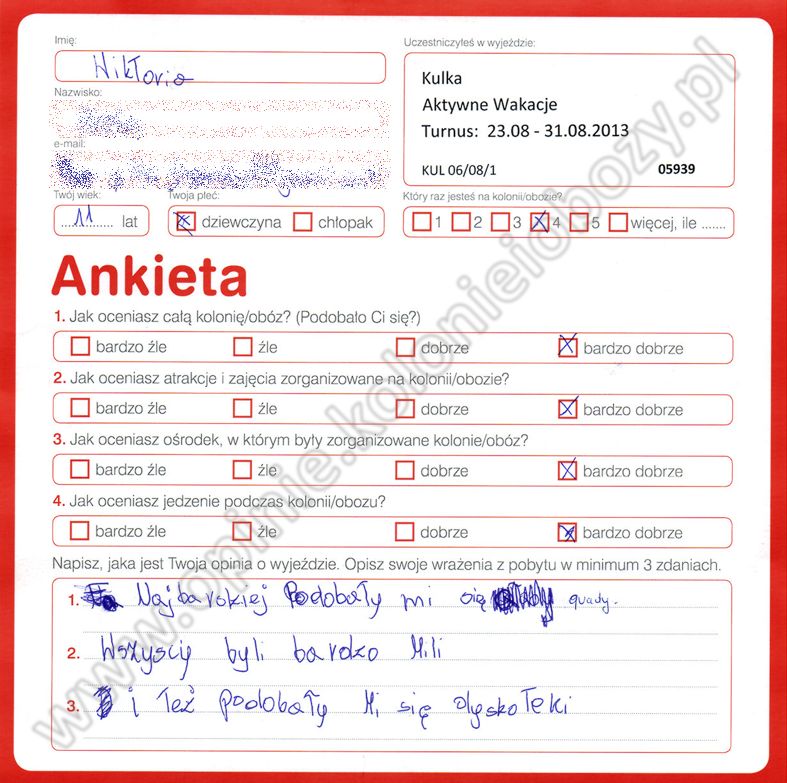 Imię:
Wiktoria
Uczestniczyłeś w wyjeździe:
Kulka
Aktywne Wakacje
Turnus: 23.08 - 31.08.2013
KUL 06/08/1 05939
Nazwisko:
e-mail:
Twój wiek: Twoja płeć:
11 lat dziewczyna chłopak
Który raz jesteś na kolonii/obozie?
1 2 3 4 5 więcej, ile .......
Ankieta
1. Jak oceniasz całą kolonię/obóz? (Podobało Ci się?)
bardzo źle źle dobrze bardzo dobrze
2. Jak oceniasz atrakcje i zajęcia zorganizowane na kolonii/obozie?
bardzo źle źle dobrze bardzo dobrze
3. Jak oceniasz ośrodek, w którym były zorganizowane kolonie/obóz?
bardzo źle źle dobrze bardzo dobrze
4. Jak oceniasz jedzenie podczas kolonii/obozu?
bardzo źle źle dobrze bardzo dobrze
Napisz, jaka jest Twoja opinia o wyjeździe. Opisz swoje wrażenia z pobytu w minimum 3 zdaniach.
1. Najbarskiej Podobały mi się quady.
2. Wszyscy byli bardzo Mili
3. i też podobały Mi się dyskoteki
www.opinie.kolonieiobozy.pl